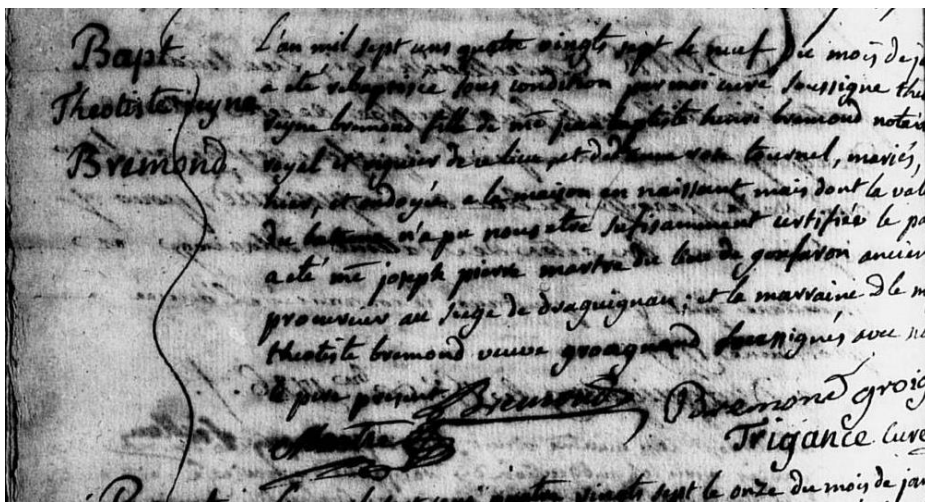 Bapt
Theotiste reyne
Bremond
L'an mil sept cens quatre vingts sept le neuf du mois de ja
a été rebaptisée sous condition par moi curé soussigné the
reyne bremond fille de me jean baptiste henri bremond notaire
royal et viguier de ce lieu, et de rose tournel, mariés,
hier, et ondoyée a la maison en naissant mais dont la vali
du n'a pu nous etre sufisamment certifiée le pa
a été me joseph pierre martre du lieu de gonfaron ancien
procureur au siege de draguignan; et la marraine dlle m
theotiste bremond veuve groignard soussignés avec n
le pere present
Bremond Bremond groig
Martre Trigance curé
L'an mil sept cens quatre vingts sept le onze du mois de jan